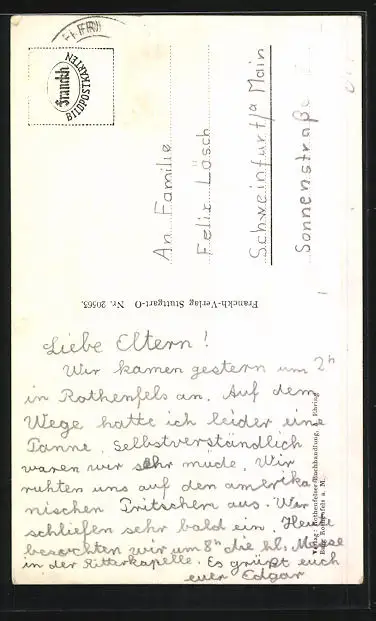 Franckh
BILDPOSTKARTEN
An Familie
Felix Lösch
Schweinfurt/a Main
Sonnenstraße
Franckh-Verlag Stuttgart-O Nr. 20565.
Liebe Eltern!
Wir kamen gestern um 2h
in Rothenfels an. Auf dem
Wege hatte ich leider eine
Panne. Selbstverständlich
waren wir sehr müde. Wir
ruhten uns auf den amerika
nischen Pritschen aus. Wir
schliefen sehr bald ein. Heute
besuchten wir um 8h die hl. Messe
in der Ritterkapelle. Es grüßt euch
euer Edgar
Verlag: Rothenfelser Buchhandlung,
Burg Rothenfels a. M.